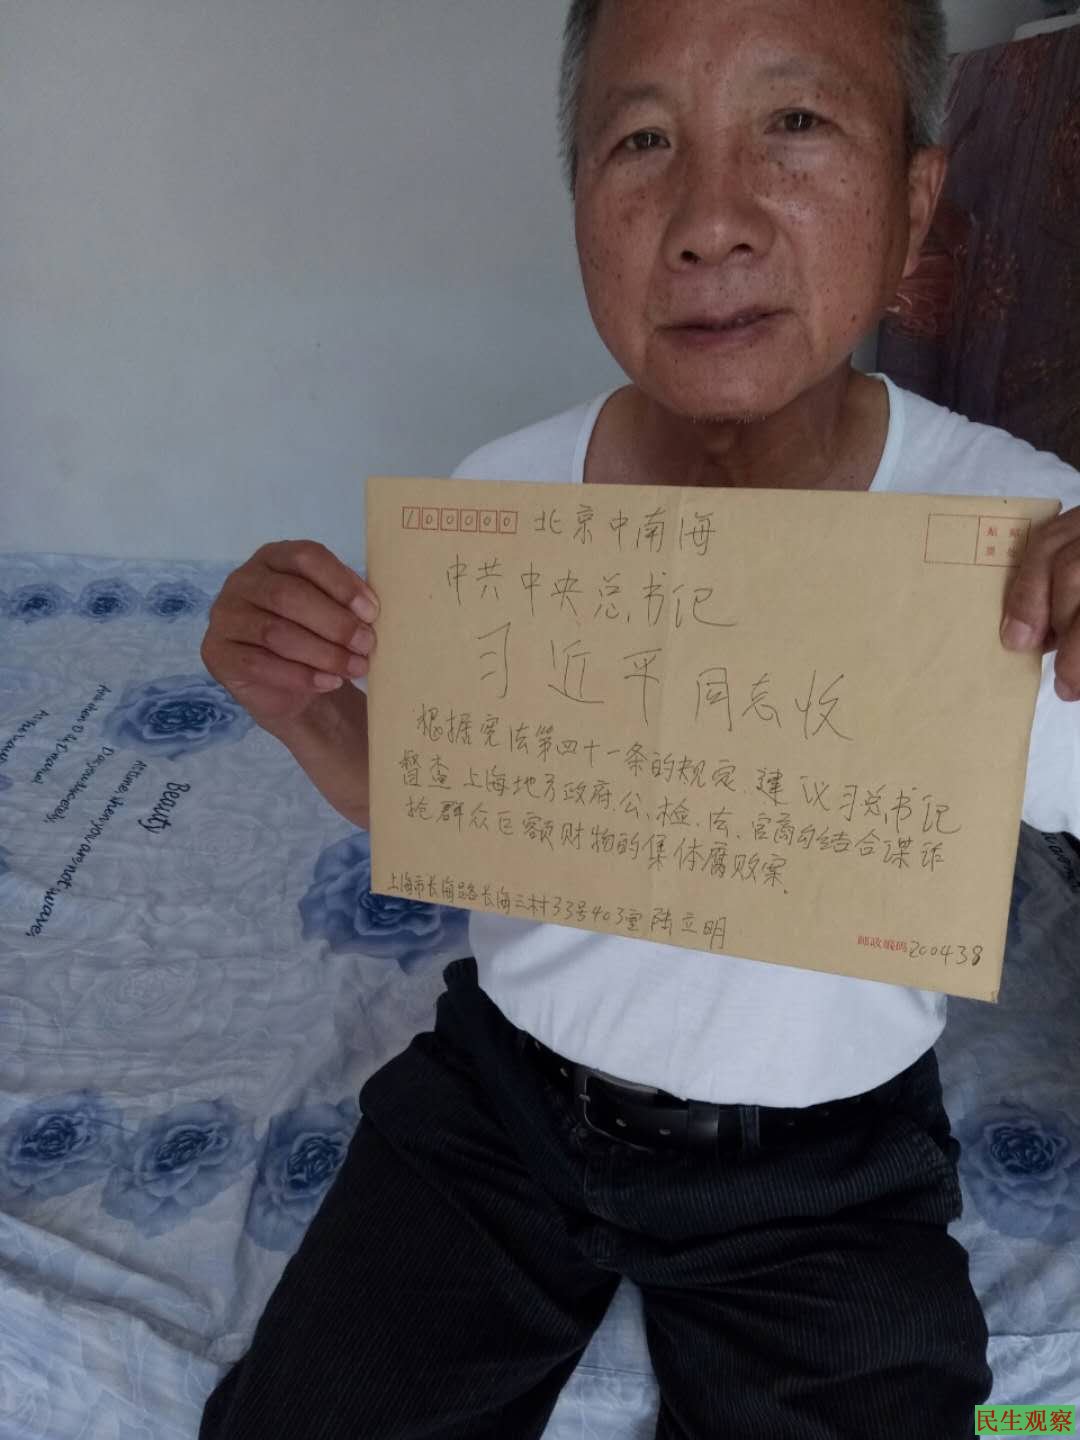 100000 北京中南海
中共中央总书记
习近平同志收
根据宪法第四十一条的规定、建议习总书记
督查上海地方政府、公、检、法、官商勾结合谋诈
抢群众巨额财物的集体腐败案、
上海市长海路长海三村33号403室陆立明
邮政编码 200438
Beauty
At time, when you are not wave,
民生观察